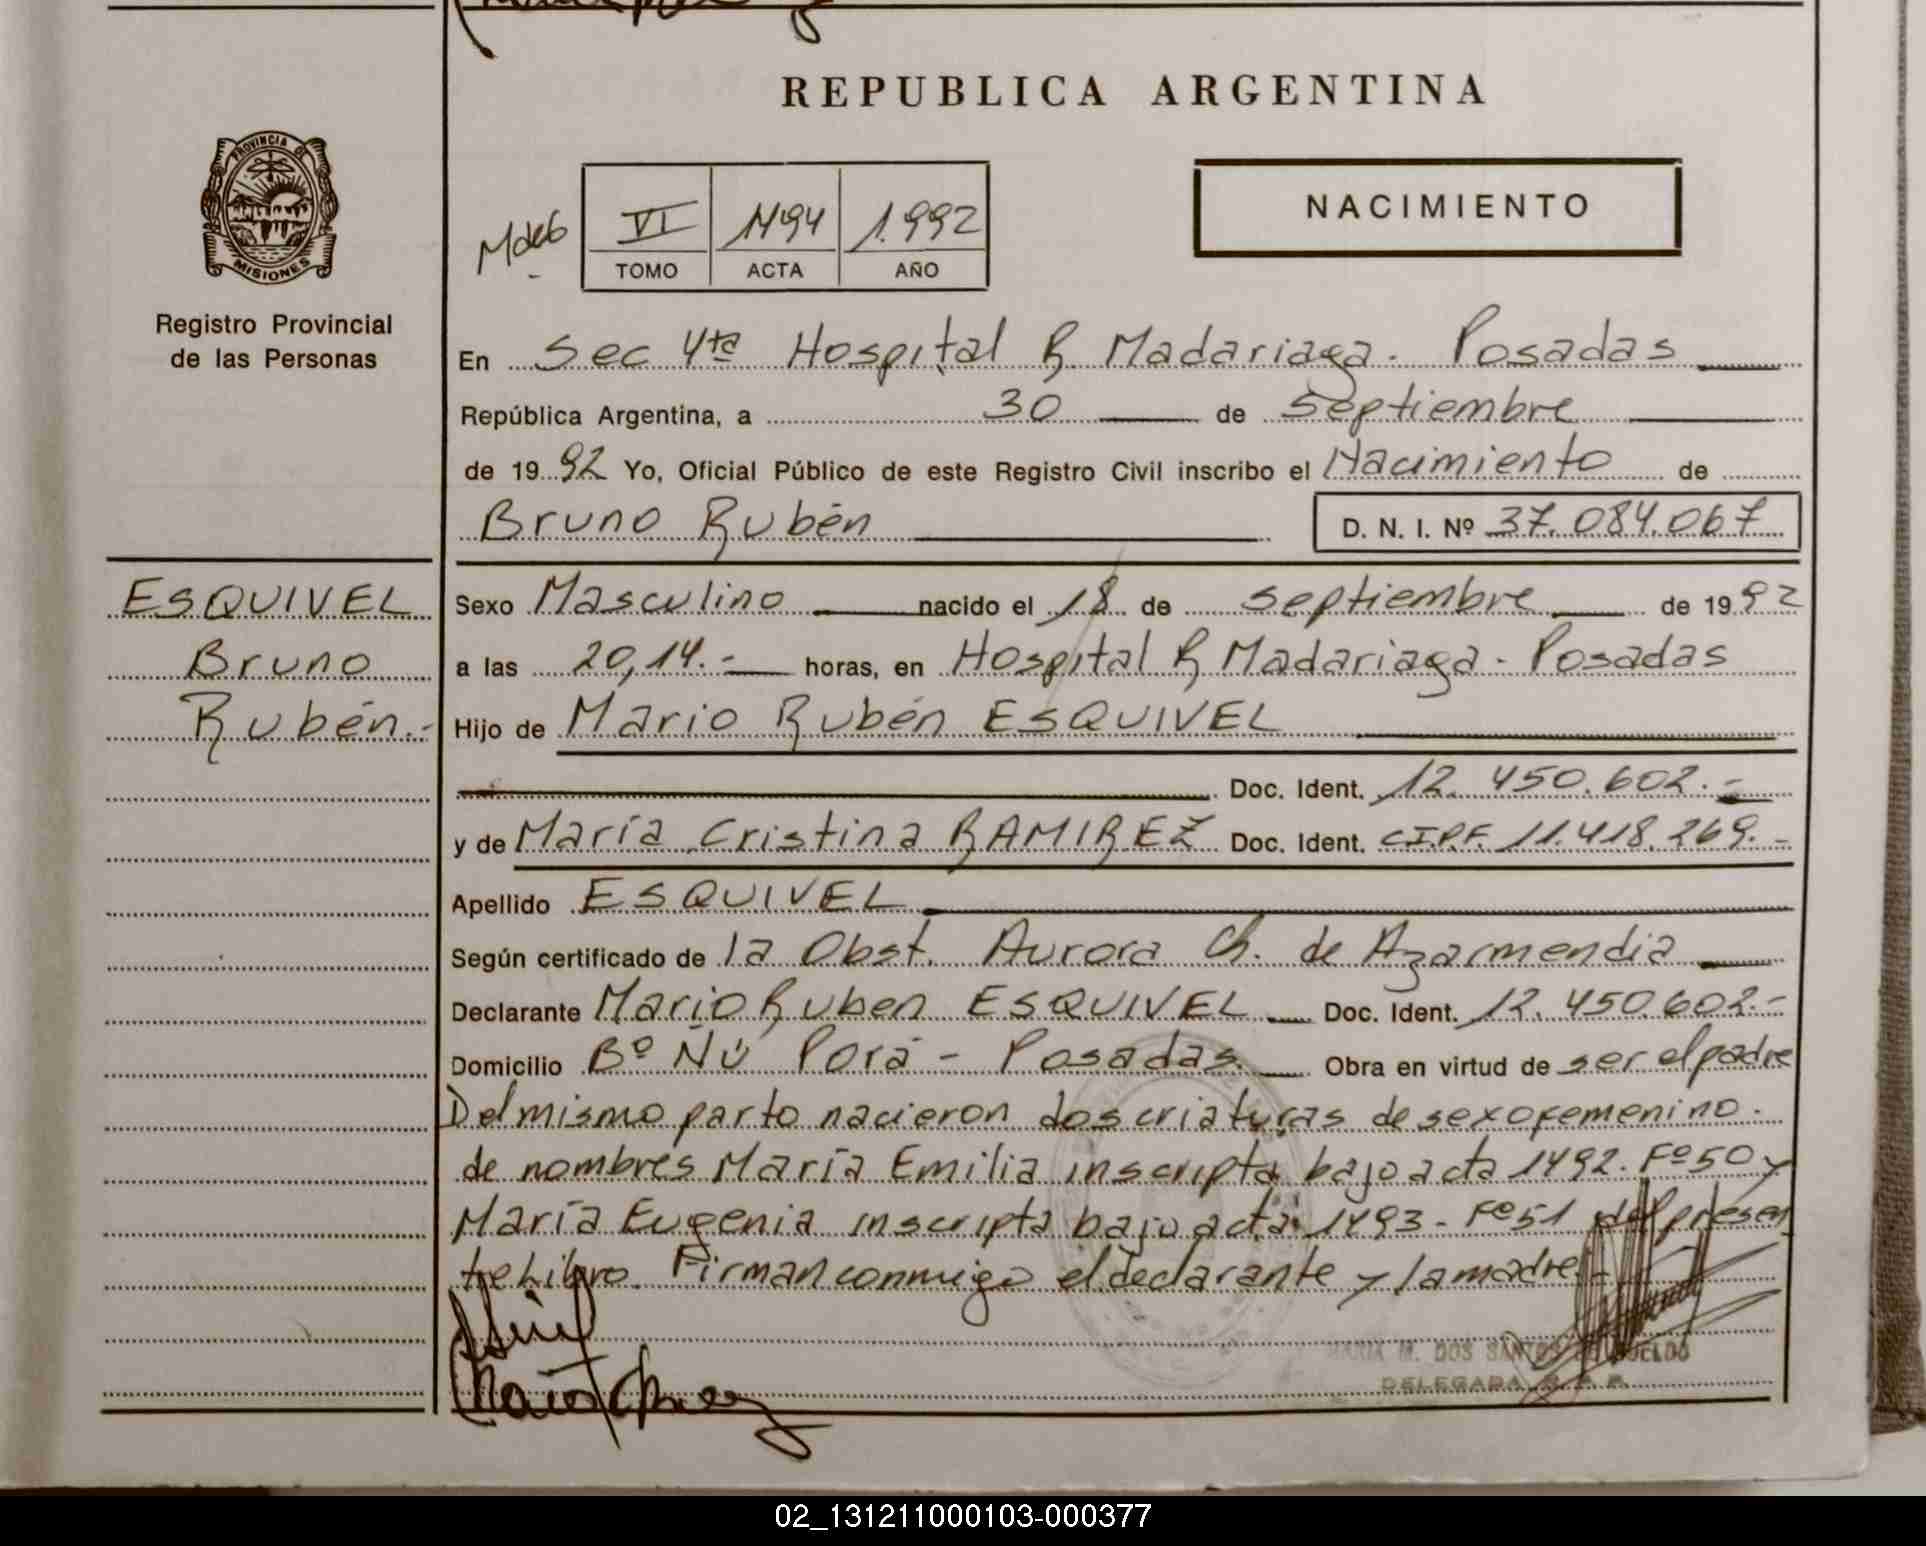 REPUBLICA ARGENTINA
PROVINCIA DE
MISIONES
Registro Provincial
de las Personas
VI 1494 1.992
TOMO ACTA AÑO
NACIMIENTO
En Sec 4ta Hospital R Madariaga. Posadas
República Argentina, a 30 de Septiembre
de 1992 Yo, Oficial Público de este Registro Civil inscribo el Nacimiento de
Bruno Rubén D. N. I. Nº 37.084.067
ESQUIVEL
Bruno
Rubén.-
Sexo Masculino nacido el 18 de septiembre de 1992
a las 20,14.- horas, en Hospital R Madariaga - Posadas
Hijo de Mario Rubén ESQUIVEL
Doc. Ident. 12.450.602.-
y de María Cristina RAMIREZ Doc. Ident. C.I.P.F. 11.418.269.-
Apellido ESQUIVEL
Según certificado de la Obst. Aurora Ch. de Azarmendia
Declarante Mario Ruben ESQUIVEL Doc. Ident. 12.450.602.-
Domicilio Bº Ñú Porá - Posadas. Obra en virtud de ser el padre
Del mismo parto nacieron dos criaturas de sexo femenino.
de nombres María Emilia inscripta bajo acta 1492. Fº50 y
María Eugenia inscripta bajo acta 1493 - Fº51 del presen
te Libro. Firman conmigo el declarante y la madre.-
MARIA M. DOS SANTOS
DELEGADA
02_131211000103-000377